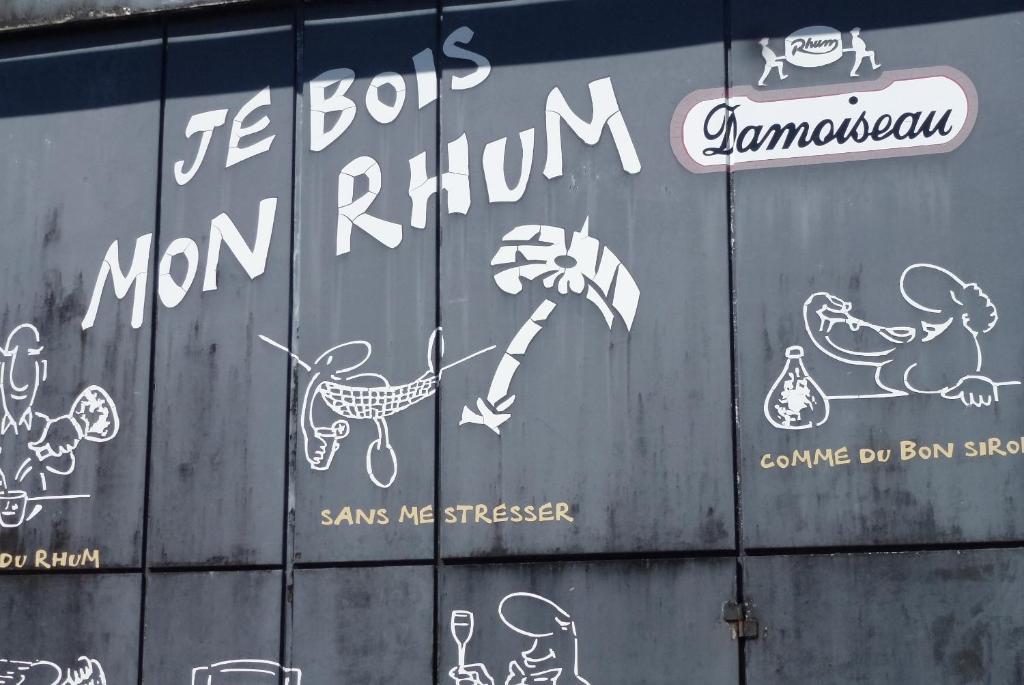 JE BOIS
MON RHUM
Rhum
Damoiseau
COMME DU BON SIRO
SANS ME STRESSER
DU RHUM